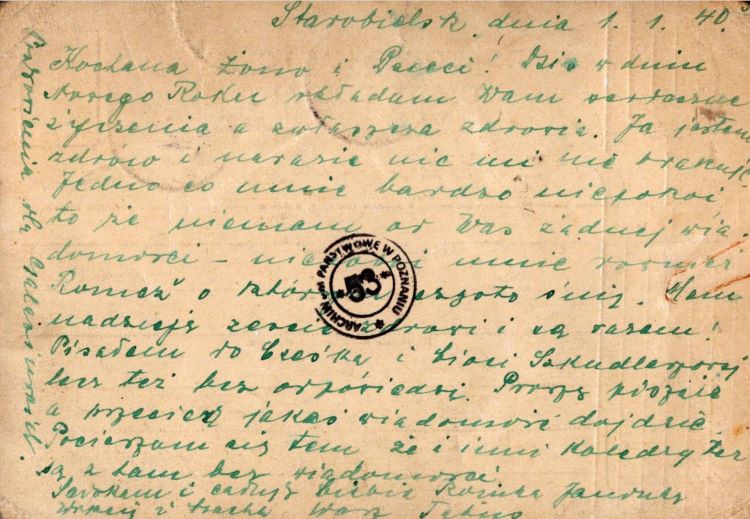 Starobielsk, dnia 1. 1. 40.
Kochana Żono i Dzieci! Dziś w dniu
Nowego Roku składam Wam serdeczne
życzenia a zwłaszcza zdrowia. Ja jestem
zdrów i narazie nic mi nie brakuje
Jedno co mnie bardzo niepokoi
to że niemam od Was żadnej wia
domości – mnie również
Romcź o któr często śnię. Mam
nadzieję żeście zdrowi i są razem!
Pisałem do Cześka i Lioci
lecz też bez odpowiedzi. Proszę piszcie
a przecież jakaś wiadomość dojdzie.
Pocieszam się tem że i inni koledzy też
są z tam bez wiadomości.
i całuję Ciebie Romka Janusz
i Wasz Tatuś
Pozdrowienia dla
ARCHIWUM PAŃSTWOWE W POZNANIU
* 53 *